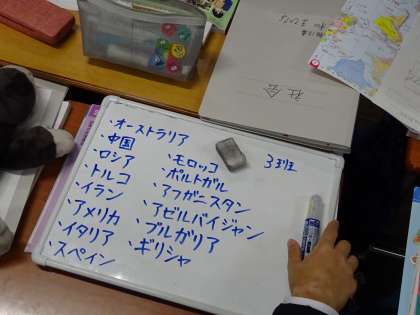 ・オーストラリア
・中国
・ロシア
・トルコ
・イラン
・アメリカ
・イタリア
・スペイン
・モロッコ
・ポルトガル
・アフガニスタン
・アゼルバイジャン
・ブルガリア
・ギリシャ
3班
社会